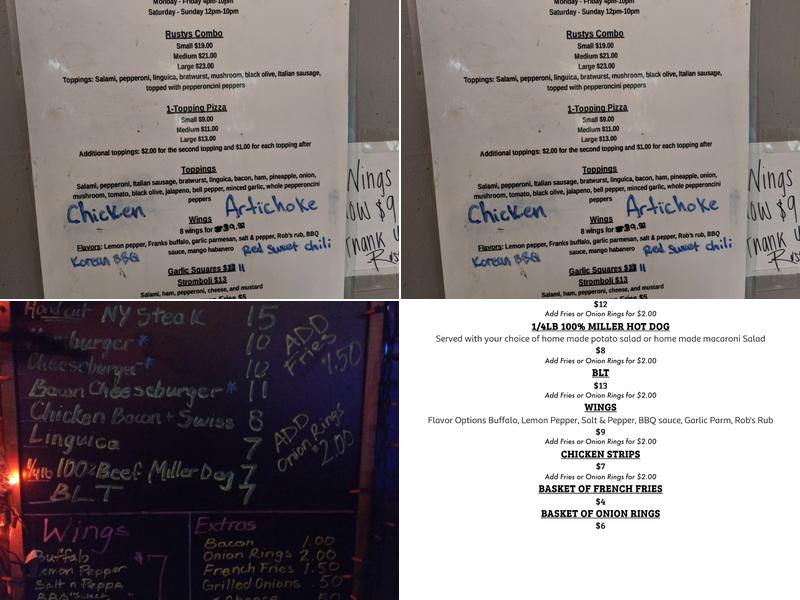 Monday - Friday 4pm-10pm
Saturday - Sunday 12pm-10pm
Rustys Combo
Small $19.00
Medium $21.00
Large $23.00
Toppings: Salami, pepperoni, linguica, bratwurst, mushroom, black olive, Italian sausage,
topped with pepperoncini peppers
1-Topping Pizza
Small $9.00
Medium $11.00
Large $13.00
Additional toppings: $2.00 for the second topping and $1.00 for each topping after
Toppings
Salami, pepperoni, Italian sausage, bratwurst, linguica, bacon, ham, pineapple, onion,
mushroom, tomato, black olive, jalapeno, bell pepper, minced garlic, whole pepperoncini
peppers
Chicken Artichoke
Wings
8 wings for
Flavors: Lemon pepper, Franks buffalo, garlic parmesan, salt & pepper, Rob's rub, BBQ
sauce, mango habanero Red sweet chili
Korean BBQ
Garlic Squares 11
Stromboli $13
Salami, ham, pepperoni, cheese, and mustard
Wings
$9
Monday - Friday 4pm-10pm
Saturday - Sunday 12pm-10pm
Rustys Combo
Small $19.00
Medium $21.00
Large $23.00
Toppings: Salami, pepperoni, linguica, bratwurst, mushroom, black olive, Italian sausage,
topped with pepperoncini peppers
1-Topping Pizza
Small $9.00
Medium $11.00
Large $13.00
Additional toppings: $2.00 for the second topping and $1.00 for each topping after
Toppings
Salami, pepperoni, Italian sausage, bratwurst, linguica, bacon, ham, pineapple, onion,
mushroom, tomato, black olive, jalapeno, bell pepper, minced garlic, whole pepperoncini
peppers
Chicken Artichoke
Wings
8 wings for
Flavors: Lemon pepper, Franks buffalo, garlic parmesan, salt & pepper, Rob's rub, BBQ
sauce, mango habanero Red sweet chili
Korean BBQ
Garlic Squares 11
Stromboli $13
Salami, ham, pepperoni, cheese, and mustard
Wings
Now $9
Thank
Hand cut NY Steak 15
Hamburger* 10
Cheeseburger* 10
Bacon Cheeseburger* 11
Chicken Bacon + Swiss 8
Linguica 7
1/4 lb 100% Beef Miller Dog 7
BLT 7
ADD
Fries
1.50
ADD
Onion Rings
$2.00
Wings
Buffalo
Lemon Pepper
Salt n Peppa
BBQ "Sweet"
7
Extras
Bacon 1.00
Onion Rings 2.00
French Fries 1.50
Grilled Onions .50
Cheese .50
$12
Add Fries or Onion Rings for $2.00
1/4LB 100% MILLER HOT DOG
Served with your choice of home made potato salad or home made macaroni Salad
$8
Add Fries or Onion Rings for $2.00
BLT
$13
Add Fries or Onion Rings for $2.00
WINGS
Flavor Options Buffalo, Lemon Pepper, Salt & Pepper, BBQ sauce, Garlic Parm, Rob's Rub
$9
Add Fries or Onion Rings for $2.00
CHICKEN STRIPS
$7
Add Fries or Onion Rings for $2.00
BASKET OF FRENCH FRIES
$4
BASKET OF ONION RINGS
$6